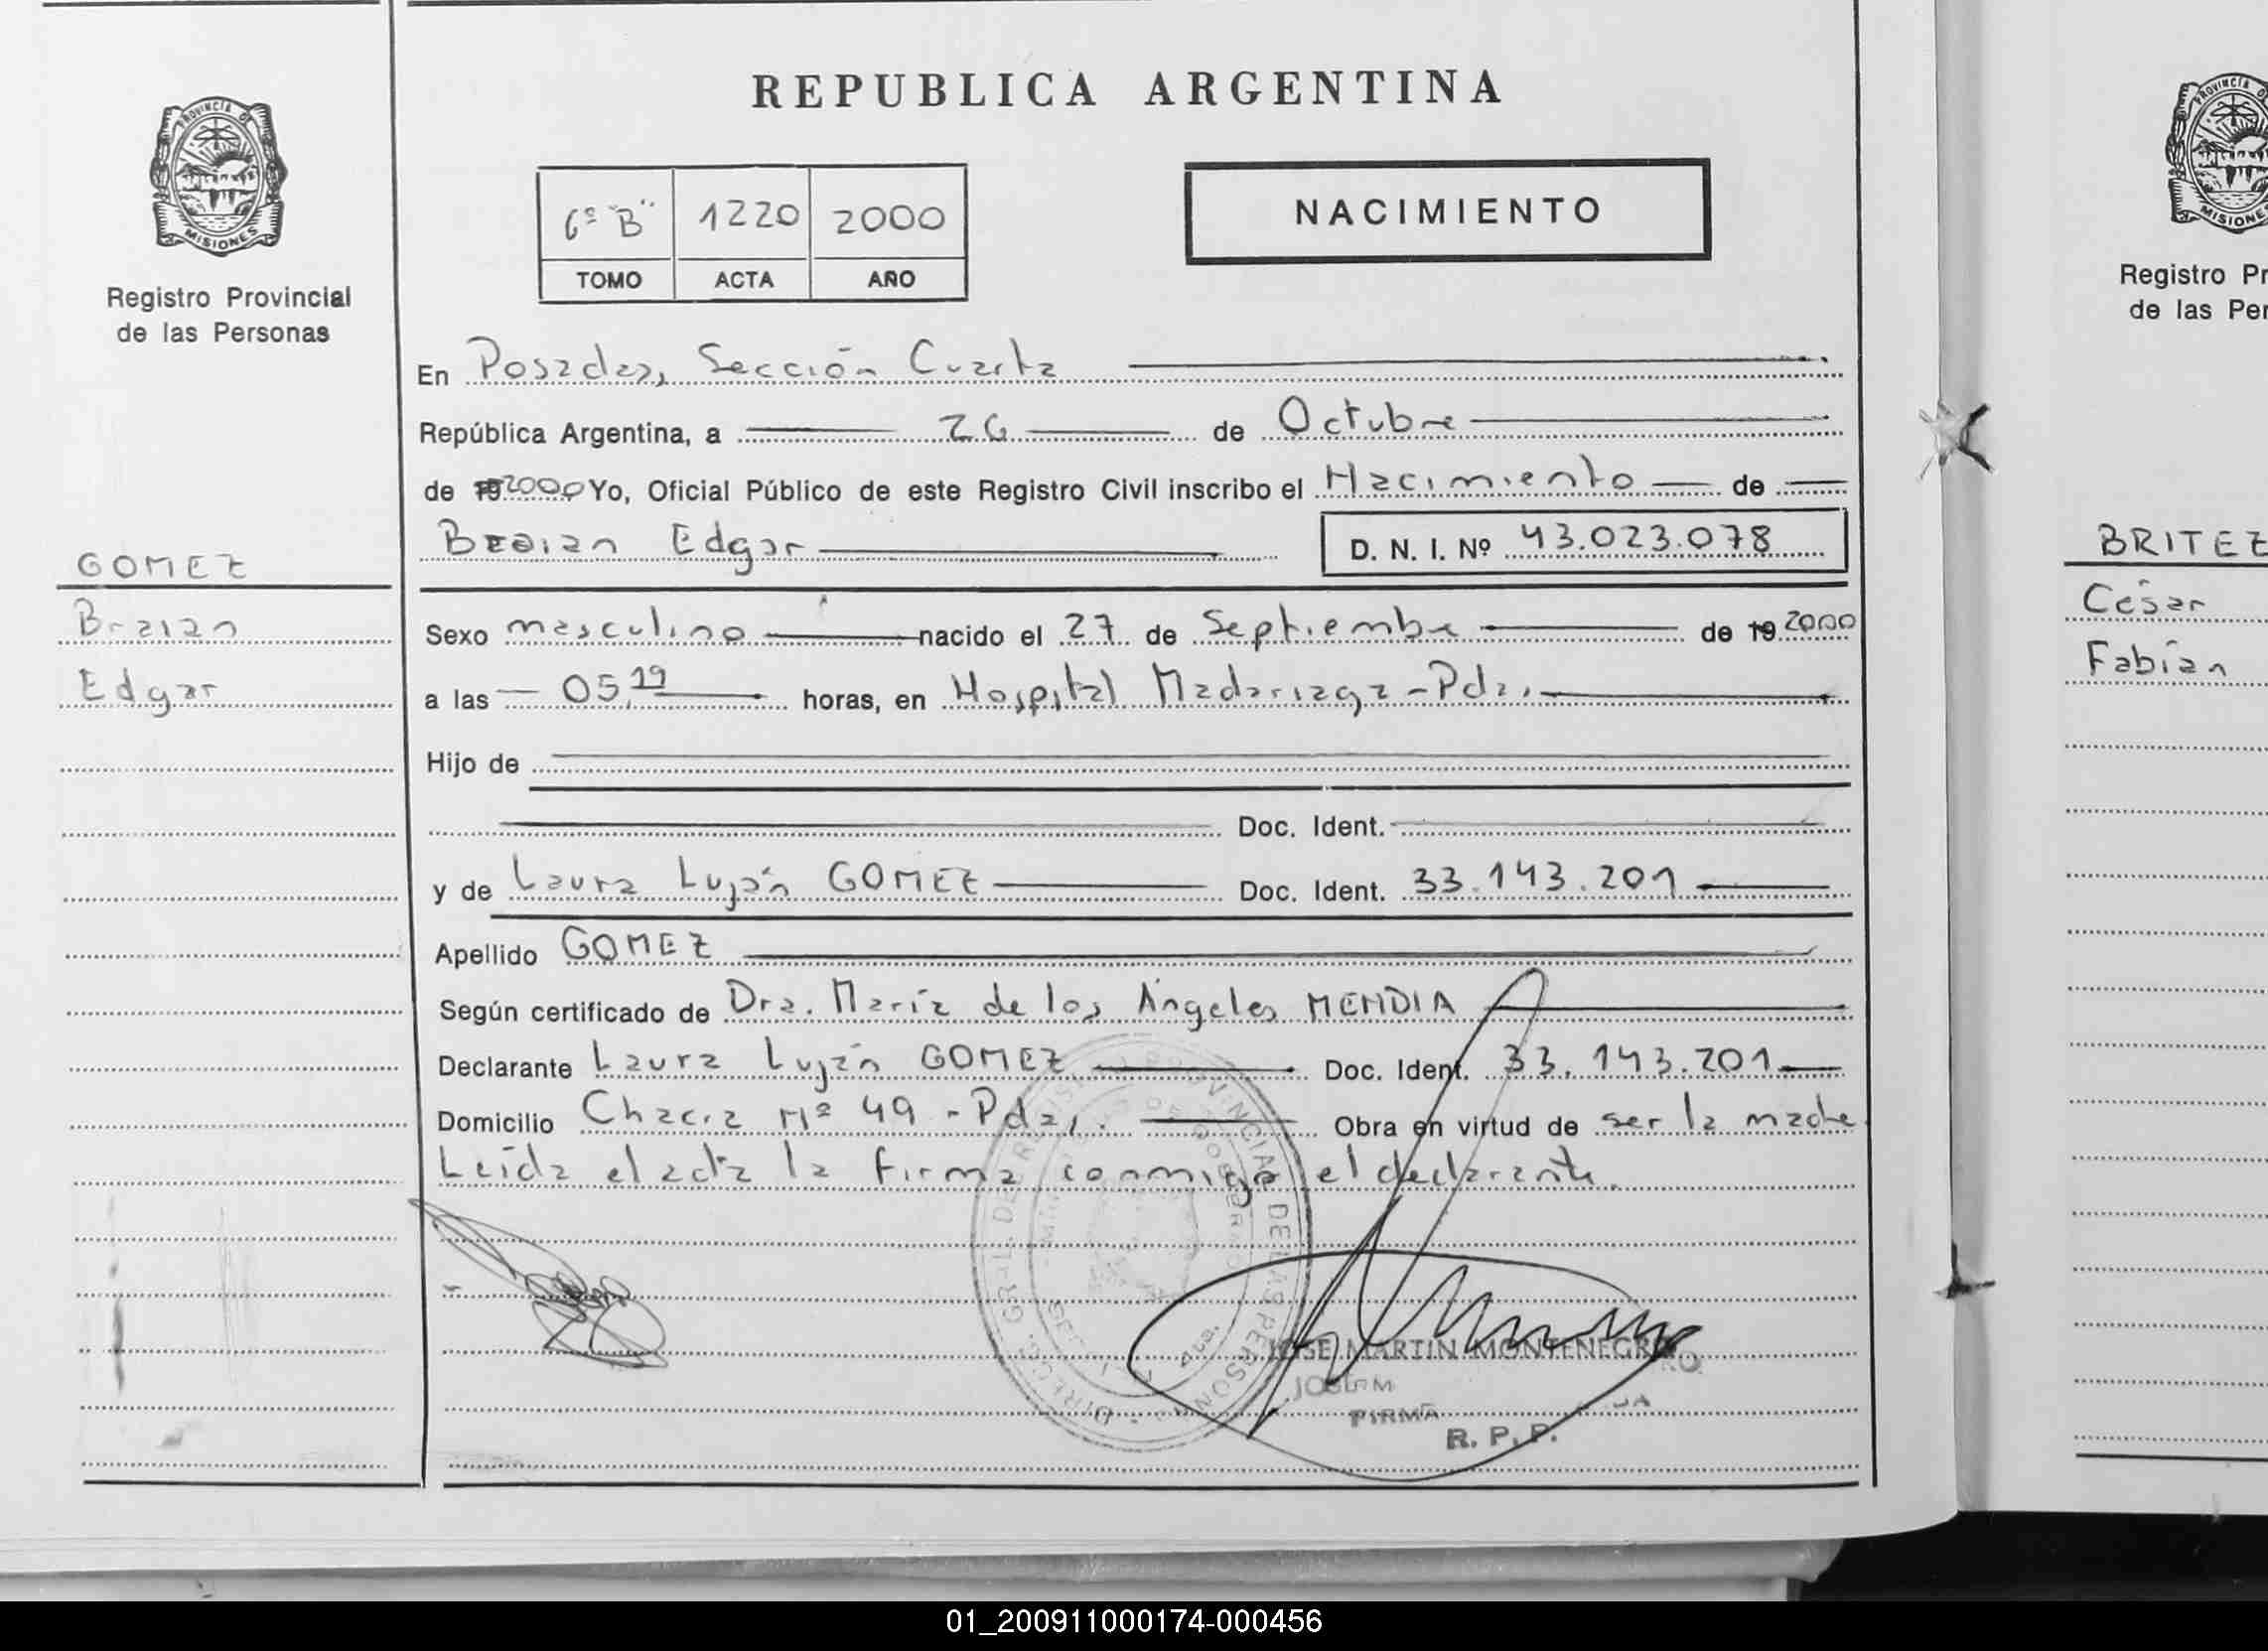 REPUBLICA ARGENTINA
PROVINCIA DE
MISIONES
Registro Provincial
de las Personas
6º "B" 1220 2000
TOMO ACTA AÑO
NACIMIENTO
En Posadas, Sección Cuarta
República Argentina, a 26 de Octubre
de 192000 Yo, Oficial Público de este Registro Civil inscribo el Nacimiento de
Braian Edgar D. N. I. Nº 43.023.078
GOMEZ
Braian
Edgar
Sexo masculino nacido el 27 de Septiembre de 19 2000
a las 05,19 horas, en Hospital Madariaga - Pdas.
Hijo de
Doc. Ident.
y de Laura Luján GOMEZ Doc. Ident. 33.143.201
Apellido GOMEZ
Según certificado de Dra. María de los Ángeles MENDIA
Declarante Laura Luján GOMEZ Doc. Ident. 33.143.201
Domicilio Chacra Nº 49 - Pdas. Obra en virtud de ser la madre
Leída el acta la firma conmigo el declarante.
JOSE MARTIN MONTENEGRO
FIRMA
R. P. P.
Registro Pr
de las Per
BRITEZ
César
Fabián
01_200911000174-000456